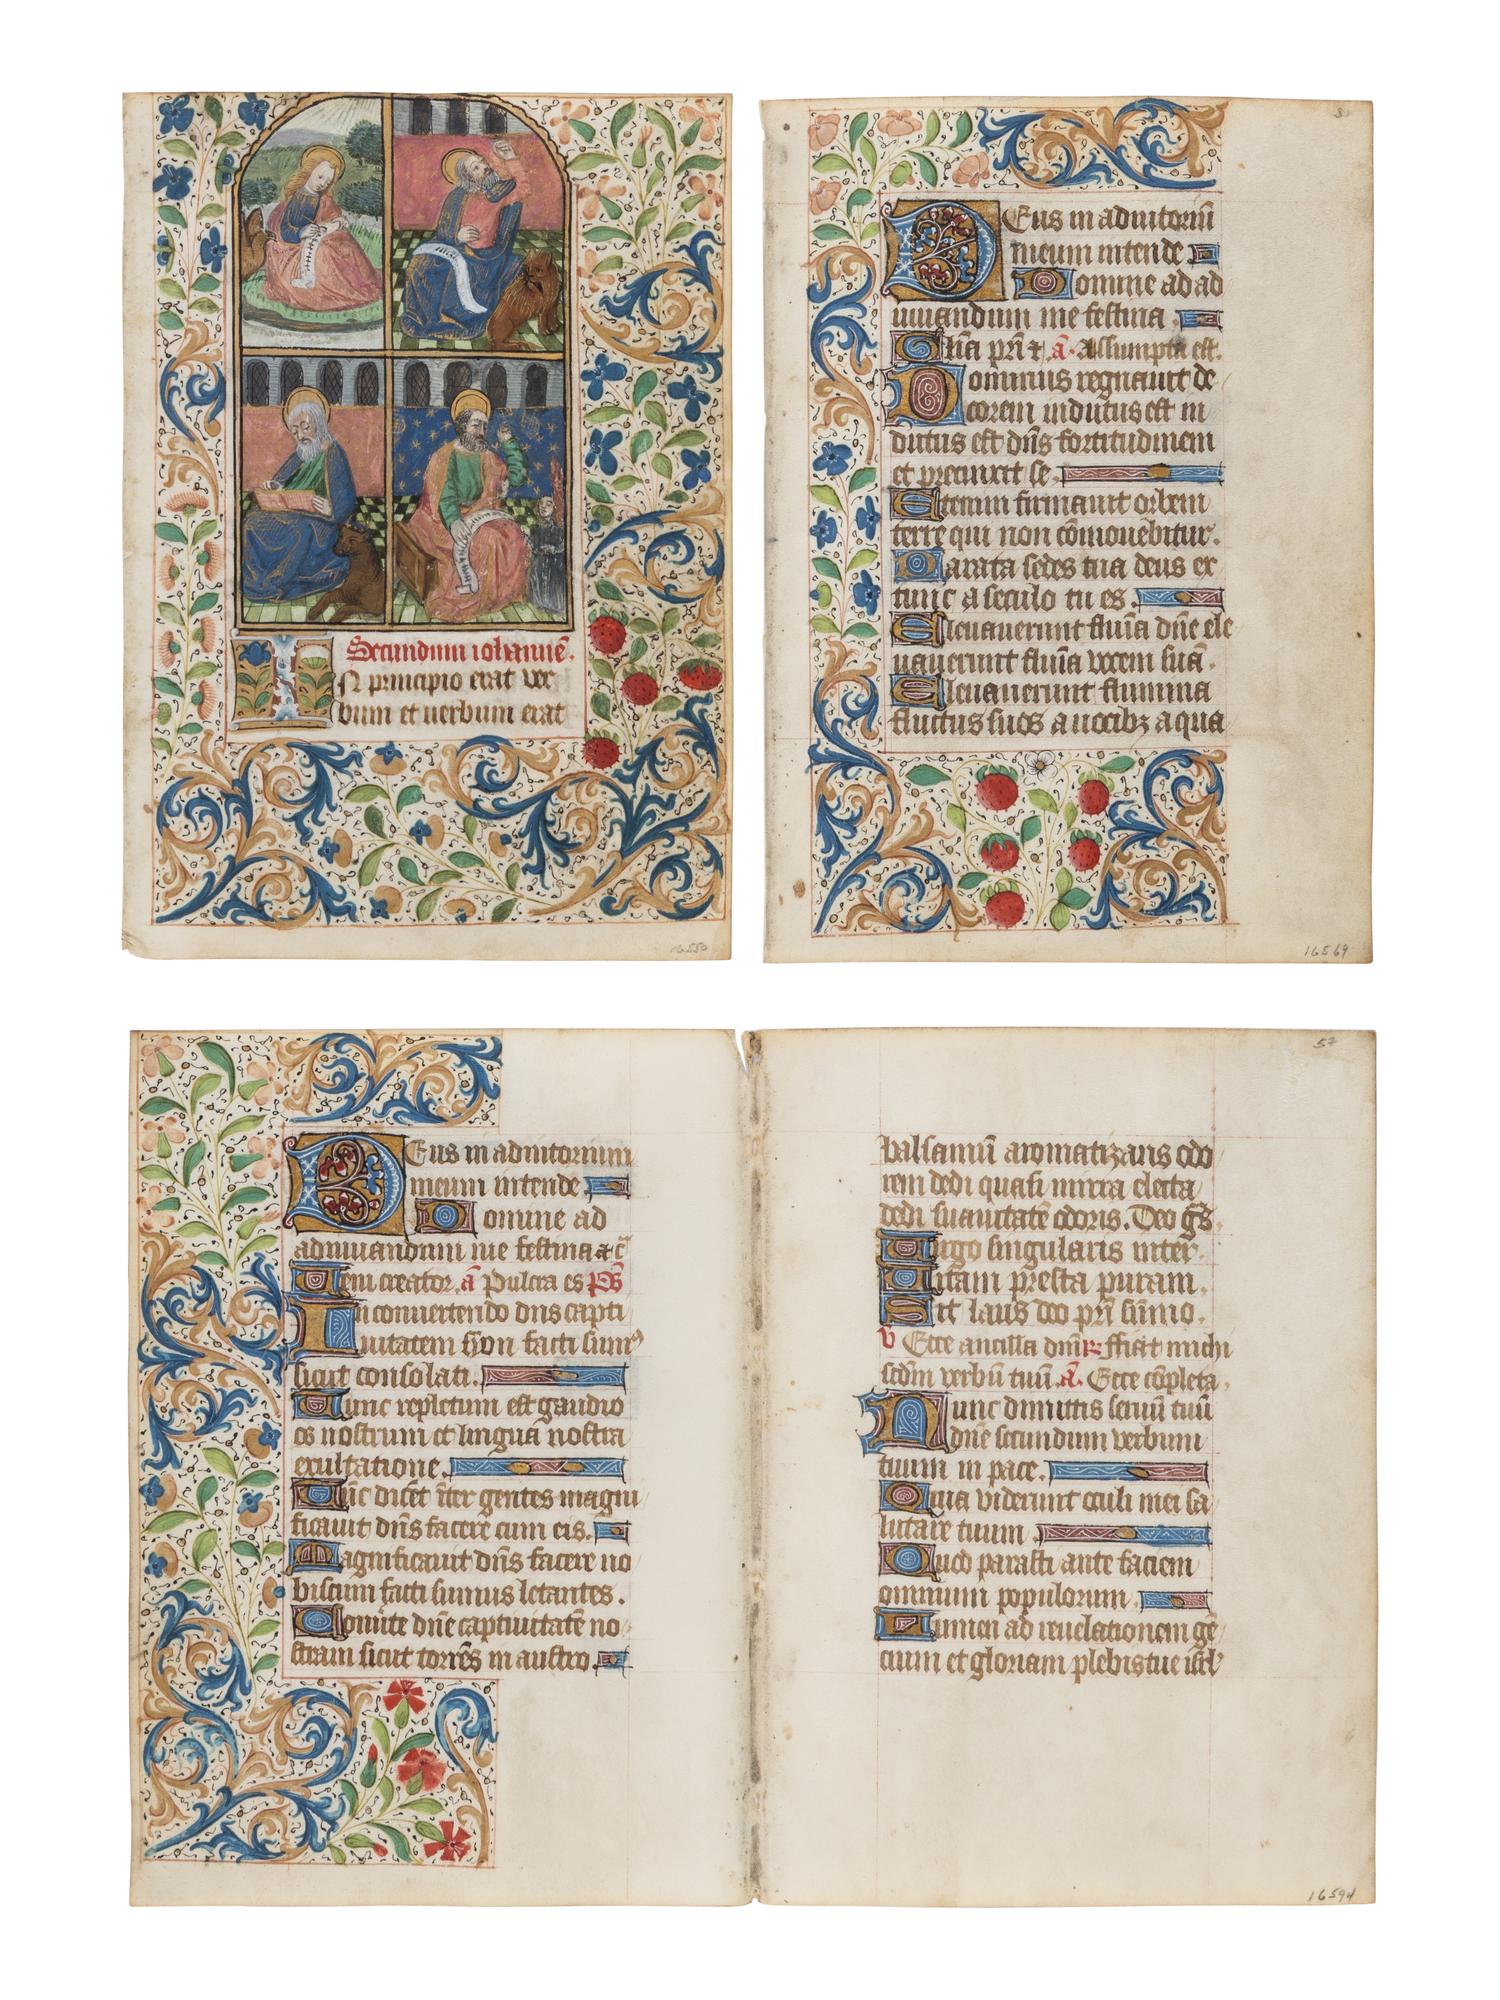 Secundum iohannē.
IN principio erat ver
bum et uerbum erat
16550
Deus in adiutoriū
meum intende
Domine ad ad
iuuandum me festina
Glīa pr̄i ⁊ .ā. Assumpta est.
Dominus regnauit de
corem indutus est in
dutus est dn̄s fortitudinem
et precinxit se.
Etenim firmauit orbem
terre qui non cōmouebitur.
Parata sedes tua deus ex
tunc a seculo tu es.
Eleuauerunt flumīa dn̄e ele
uauerunt flumīa vocem suā.
Eleuauerunt flumina
fluctus suos a uocibꝫ aqua
16569
Deus in adiutorium
meum intende
Domine ad
adiuuandum me festina
Ueni creator. ā Pulcra es Ps̄
In conuertendo dn̄s capti
uitatem syon facti sumꝰ
sicut consolati.
Tunc repletum est gaudio
os nostrum et lingua nostra
exultatione.
Tūc dicēt īter gentes magni
ficauit dn̄s facere cum eis.
Magnificauit dn̄s facere no
biscum facti sumus letantes.
Conūte dn̄e captiuitatē no
stram sicut torrēs in austro.
57
balsamū aromatizans odo
rem dedi quasi mirra electa
dedi suauitatē odoris. Deo gr̄s.
Uirgo singularis inter.
Uitam presta puram.
Sit laus deo pr̄i sūmo.
v̄ Ecce ancilla dn̄i R̄ ffiat michi
scdm̄ verbū tuū. ā. Ecce cōpleta.
Nunc dimittis seruū tuū
dn̄e secundum verbum
tuum in pace.
Quia viderunt oculi mei sa
lutare tuum
Quod parasti ante faciem
omnium populorum
Lumen ad reuelationem gē
cium et gloriam plebis tue isrl̄
16594